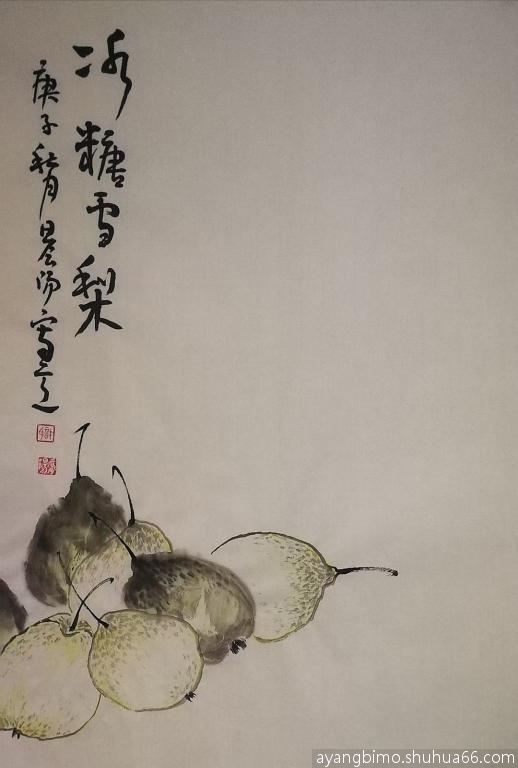 冰糖雪梨
庚子秋月阳寫意
ayangbimo.shuhua66.com